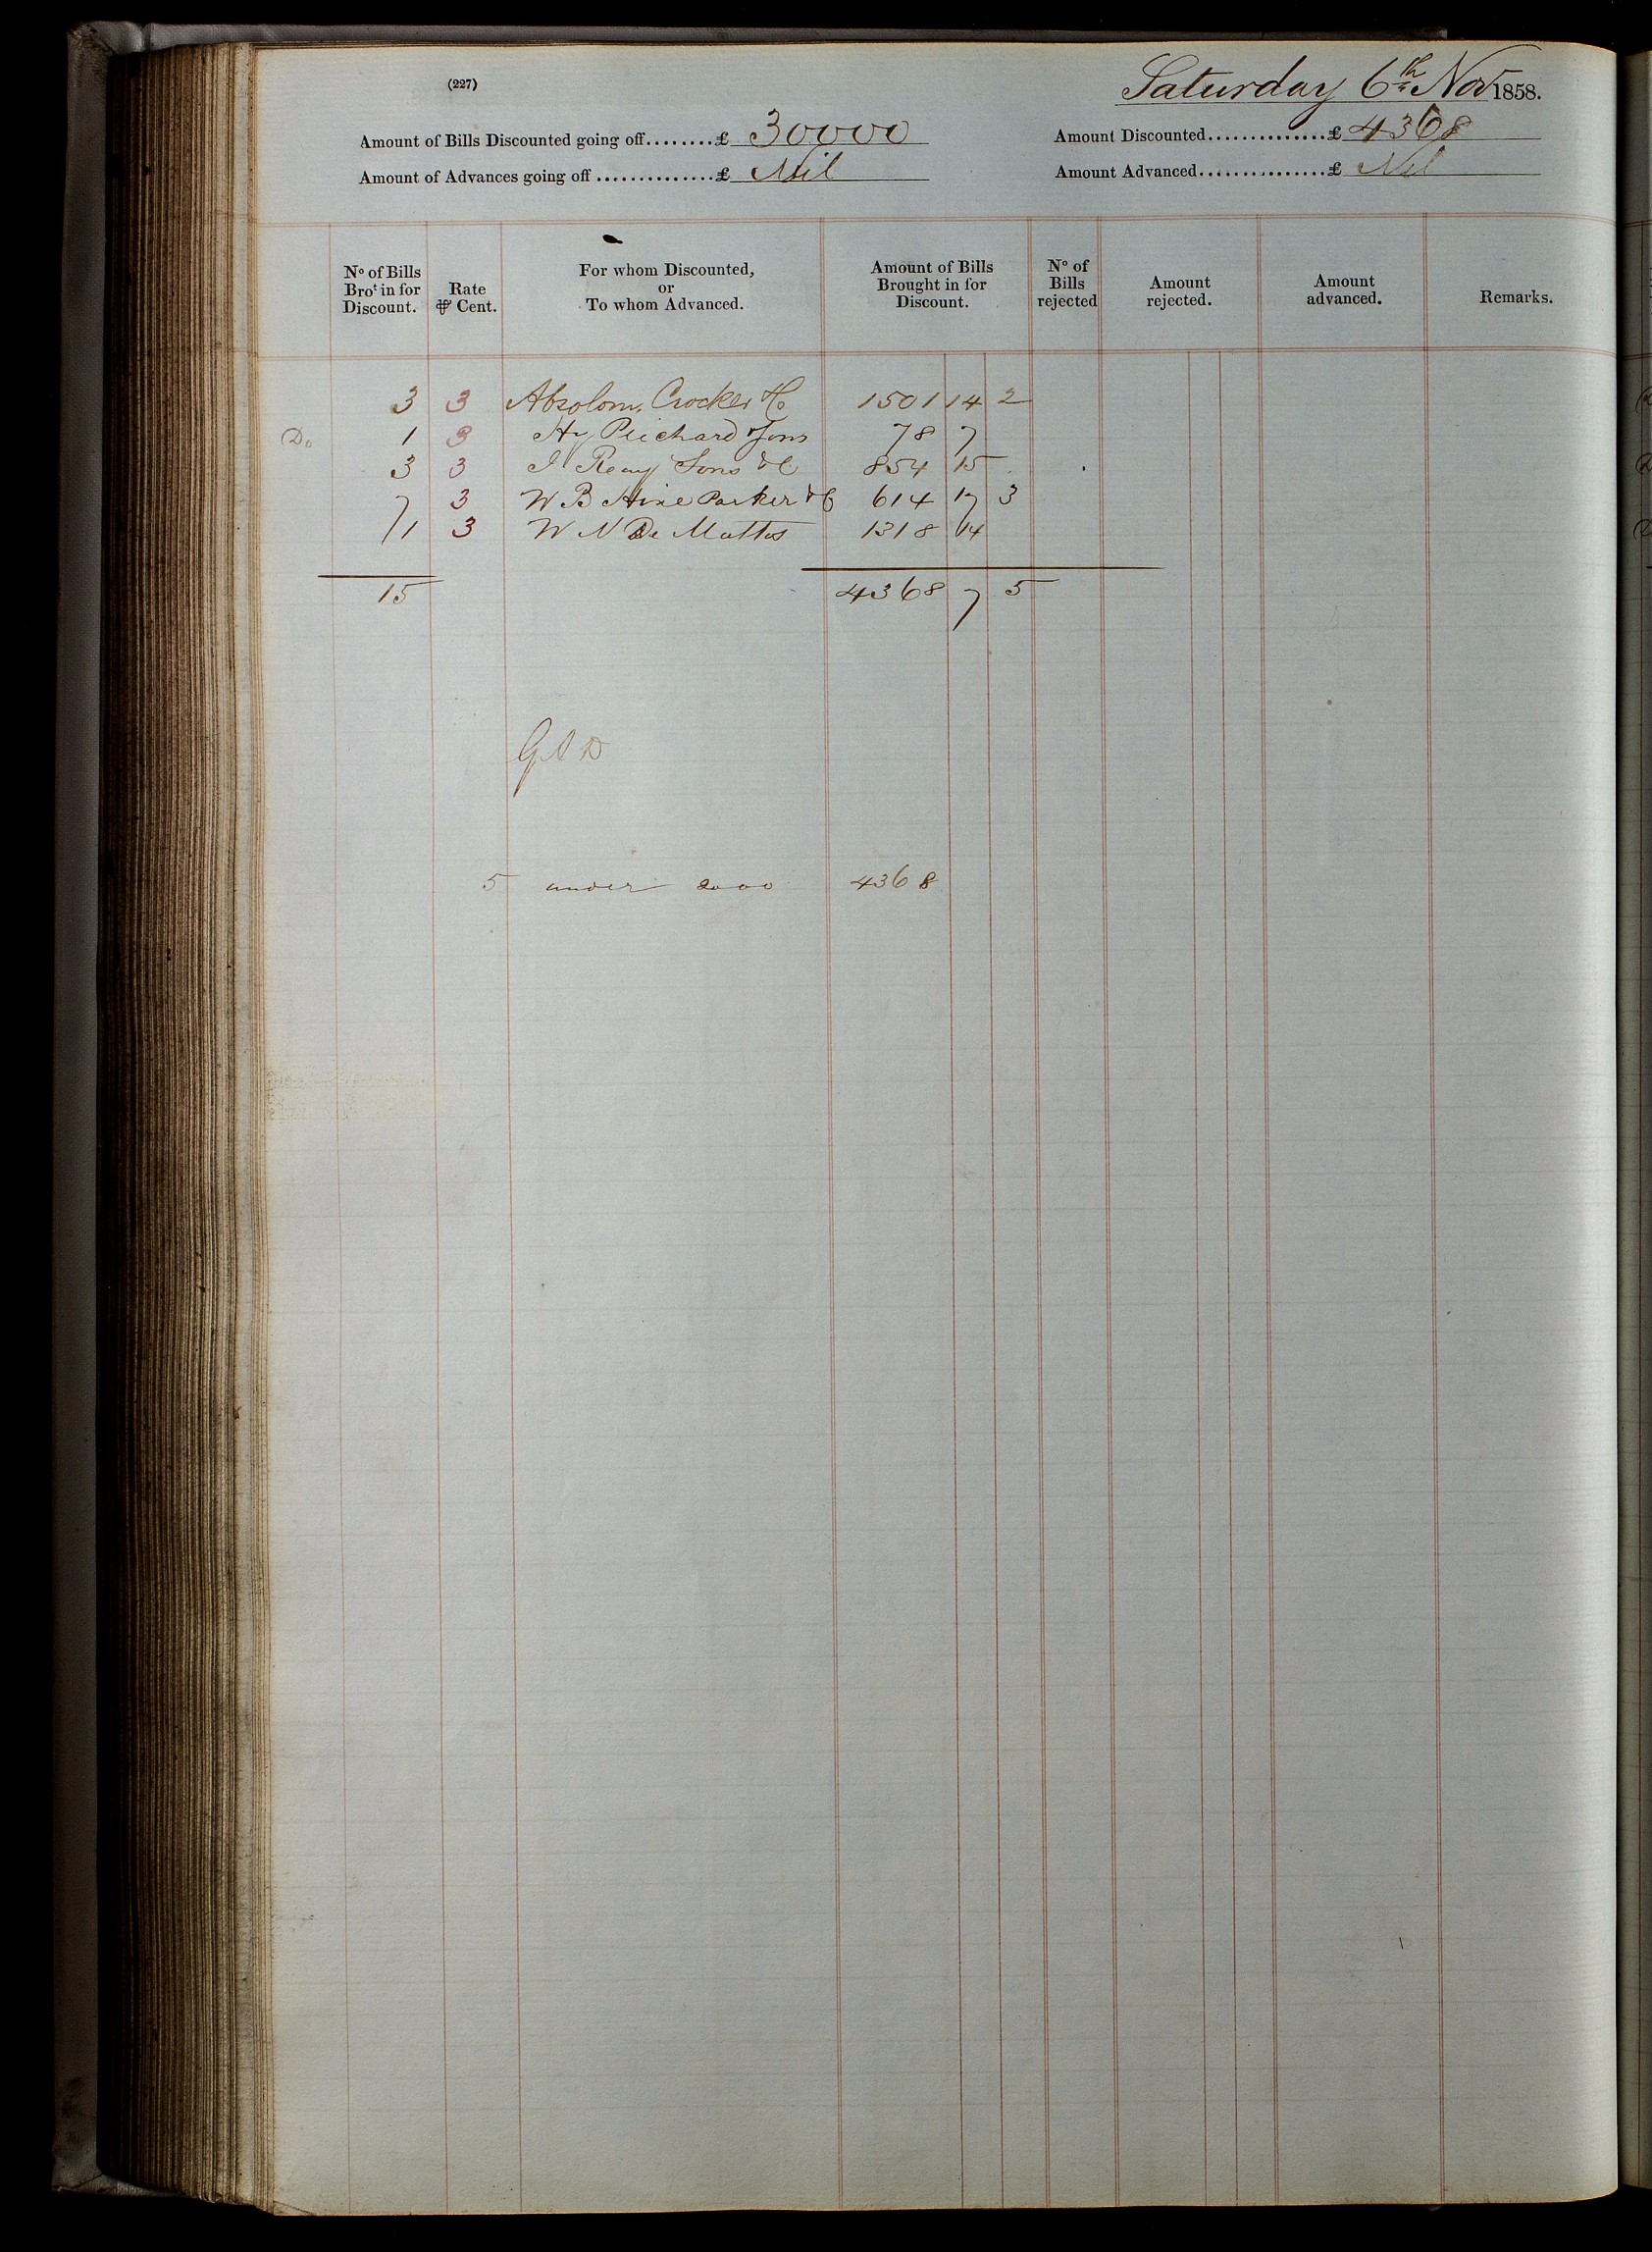 (227)
Saturday 6th Nov 1858.
Amount of Bills Discounted going off........£ 30000
Amount Discounted..............£ 4368
Amount of Advances going off..............£ Nil
Amount Advanced...............£ Nil
No of Bills Brot in for Discount.
Rate ⅌ Cent.
For whom Discounted, or To whom Advanced.
Amount of Bills Brought in for Discount.
No of Bills rejected
Amount rejected.
Amount advanced.
Remarks.
3 3 Absolom, Crocker & Co 1501 14 2
Do 1 3 Hy Prichard & Sons 78 7
3 3 J Reay Sons & C 854 15
7 3 W B Hine Parker & C 614 17 3
1 3 W N De Mattos 1318 14
15 4368 7 5
5 under 2000 4368